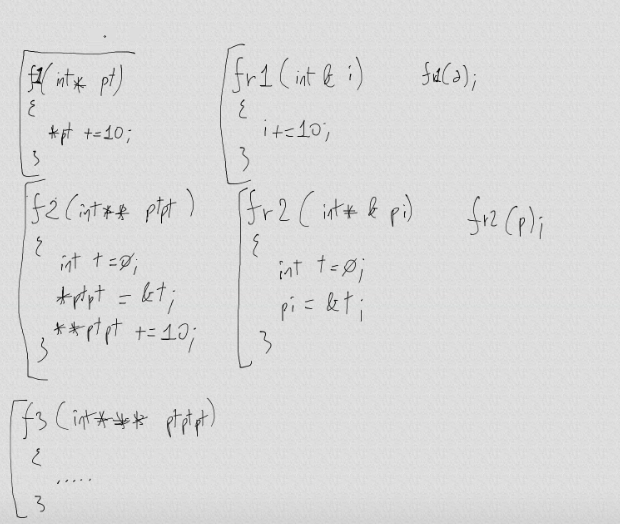 f1(int* pt)
{
*pt +=10;
}
fr1(int& i)
{
i+=10;
}
fr1(a);
f2(int** ptpt)
{
int t=0;
*ptpt = &t;
**ptpt +=10;
}
fr2(int*& pi)
{
int t=0;
pi = &t;
}
fr2(p);
f3(int*** ptptpt)
{
.....
}